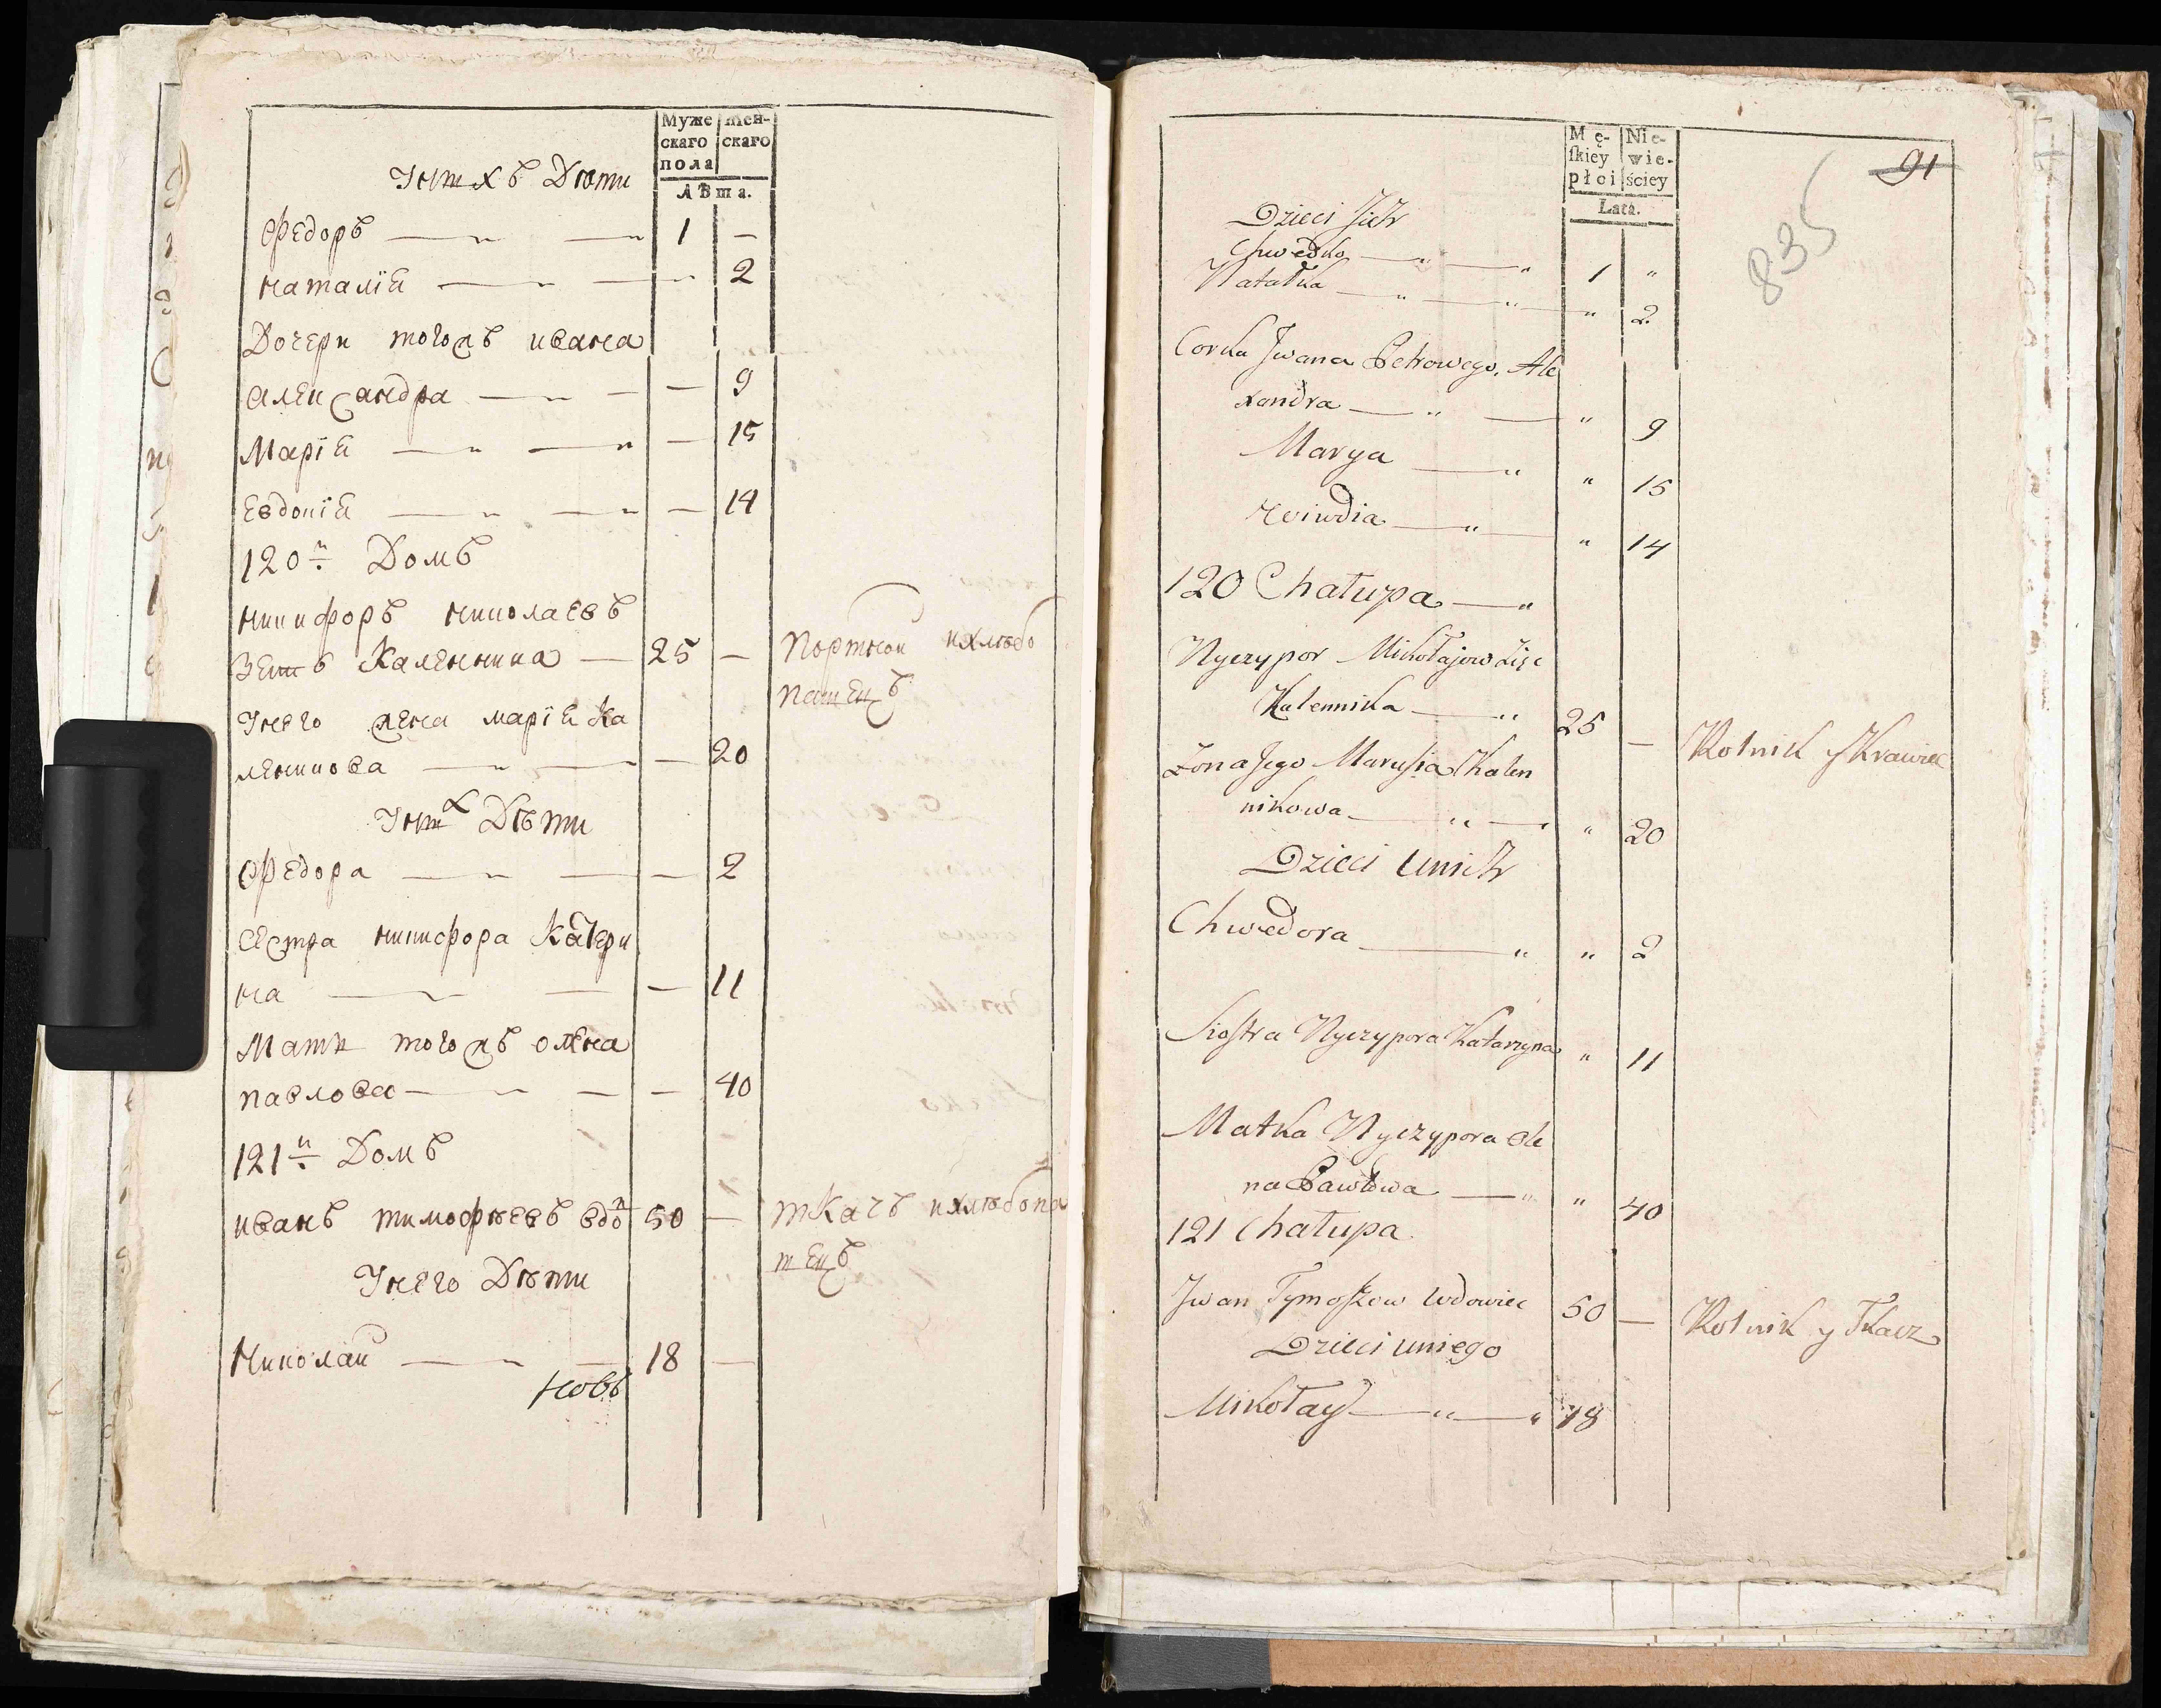 Муже
скаго
пола
жен-
скаго
Лѣта.
У нихъ Дѣти
Федоръ 1 —
Наталія — 2
Дочери тогожъ ивана
Александра — 9
Марія — 15
Евдокія — 14
120й Домъ
Никифоръ Николаевъ
зять Каленника — 25 — Портной и хлѣбо
пашецъ
У него жена марія Ка
леникова — 20
У них Дѣти
Федора — 2
Сестра никифора Катери
на — 11
Мати тогожъ олена
павлова — 40
121й Домъ
иванъ тимофѣевъ вдо 50 — ткачъ и хлѣбопа
шецъ
У него Дѣти
Николай 18 —
новъ
Mę-
ſkiey
płci
Nie-
wie-
ściey
Lata.
91
835
Dzieci Jich
Chwedko 1 "
Natałka " 2
Corka Jwana Petrowego, Ale
xandra " 9
Marya " 15
" 14
120 Chałupa
Nyczypor Mikołajow Zięć
Kalennika 25 — Rolnik y Krawiec
Żona Jego Marusia Kalen
nikowa " 20
Dzieci unich
Chwedora " 2
Siostra Nyczypora Katarzyna " 11
Matka Nyczypora Ole
na Pawłowa " 40
121 Chałupa
Jwan Tymoszow Wdowiec 50 — Rolnik y Tkacz
Dzieci uniego
Mikołay 18